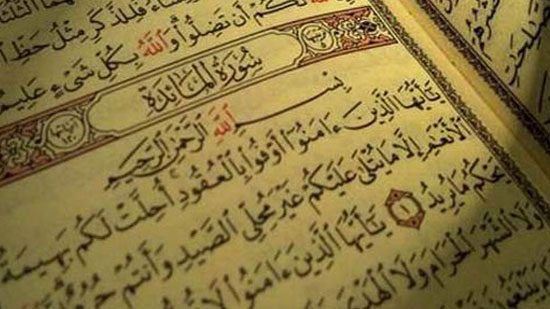 فَلِلذَّكَرِ مِثْلُ حَظِّ
ٱللَّهُ لَكُمْ أَن تَضِلُّوا۟ وَٱللَّهُ بِكُلِّ شَىْءٍ عَلِيمٌ
سُورَةُ المَائِدَةِ
بِسْمِ ٱللَّهِ ٱلرَّحْمَـٰنِ ٱلرَّحِيمِ
يَـٰٓأَيُّهَا ٱلَّذِينَ ءَامَنُوٓا۟ أَوْفُوا۟ بِٱلْعُقُودِ أُحِلَّتْ لَكُم بَهِيمَةُ
ٱلْأَنْعَـٰمِ إِلَّا مَا يُتْلَىٰ عَلَيْكُمْ غَيْرَ مُحِلِّى ٱلصَّيْدِ وَأَنتُمْ
يَحْكُمُ مَا يُرِيدُ ١ يَـٰٓأَيُّهَا ٱلَّذِينَ ءَامَنُوا۟ لَا
وَلَا ٱلشَّهْرَ ٱلْحَرَامَ وَلَا ٱلْهَدْىَ